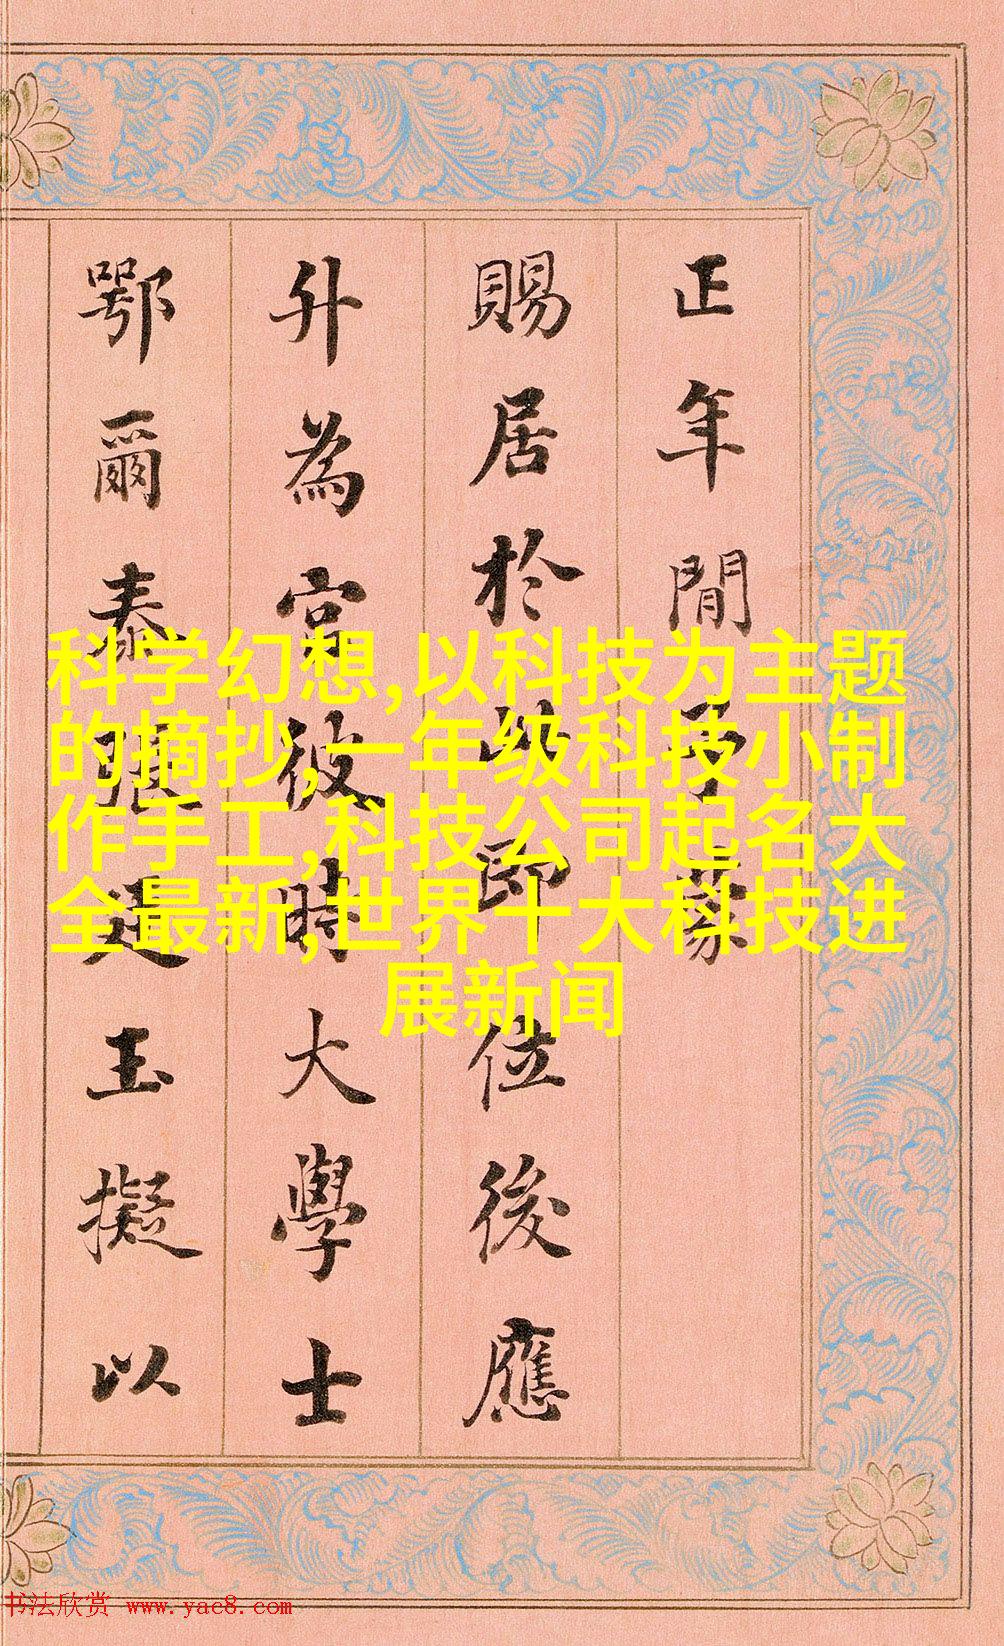 正年間予蒙
賜居於此即位後應
升為宮彼時大學士
鄂爾泰張廷玉擬以
科学幻想,以科技为主题
的摘抄,一年级科技小制
作手工,科技公司起名大
全最新,世界十大科技进
展新闻
书法欣赏 www.yac8.com